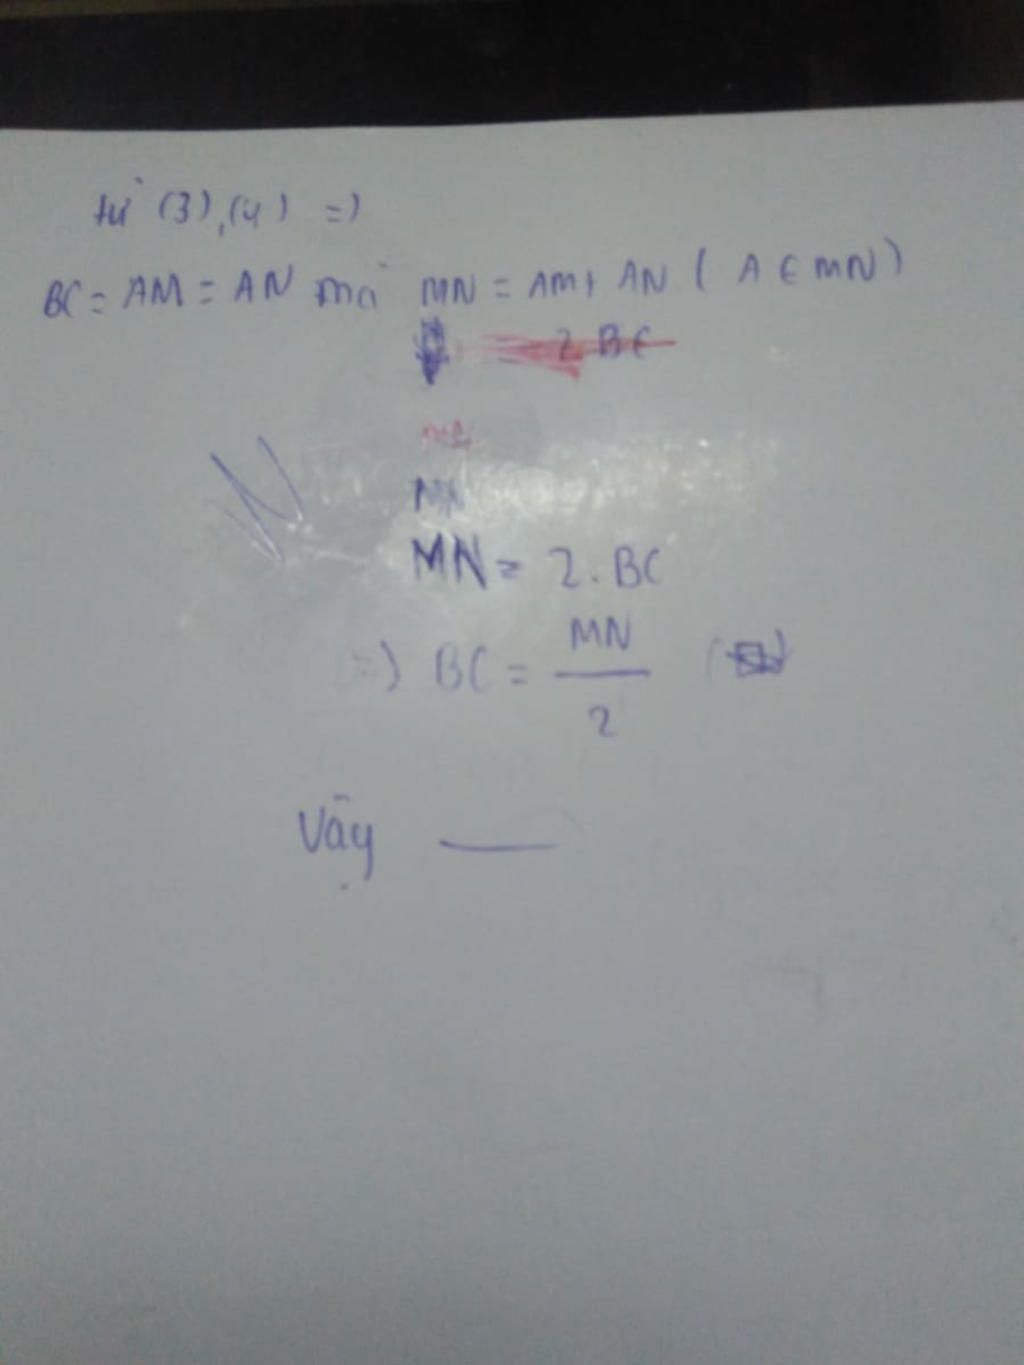 từ (3), (4) =)
BC = AM = AN mà MN = AM + AN ( A ∈ MN )
2 BC
MN
MN = 2. BC
=) BC = MN/2
Vậy